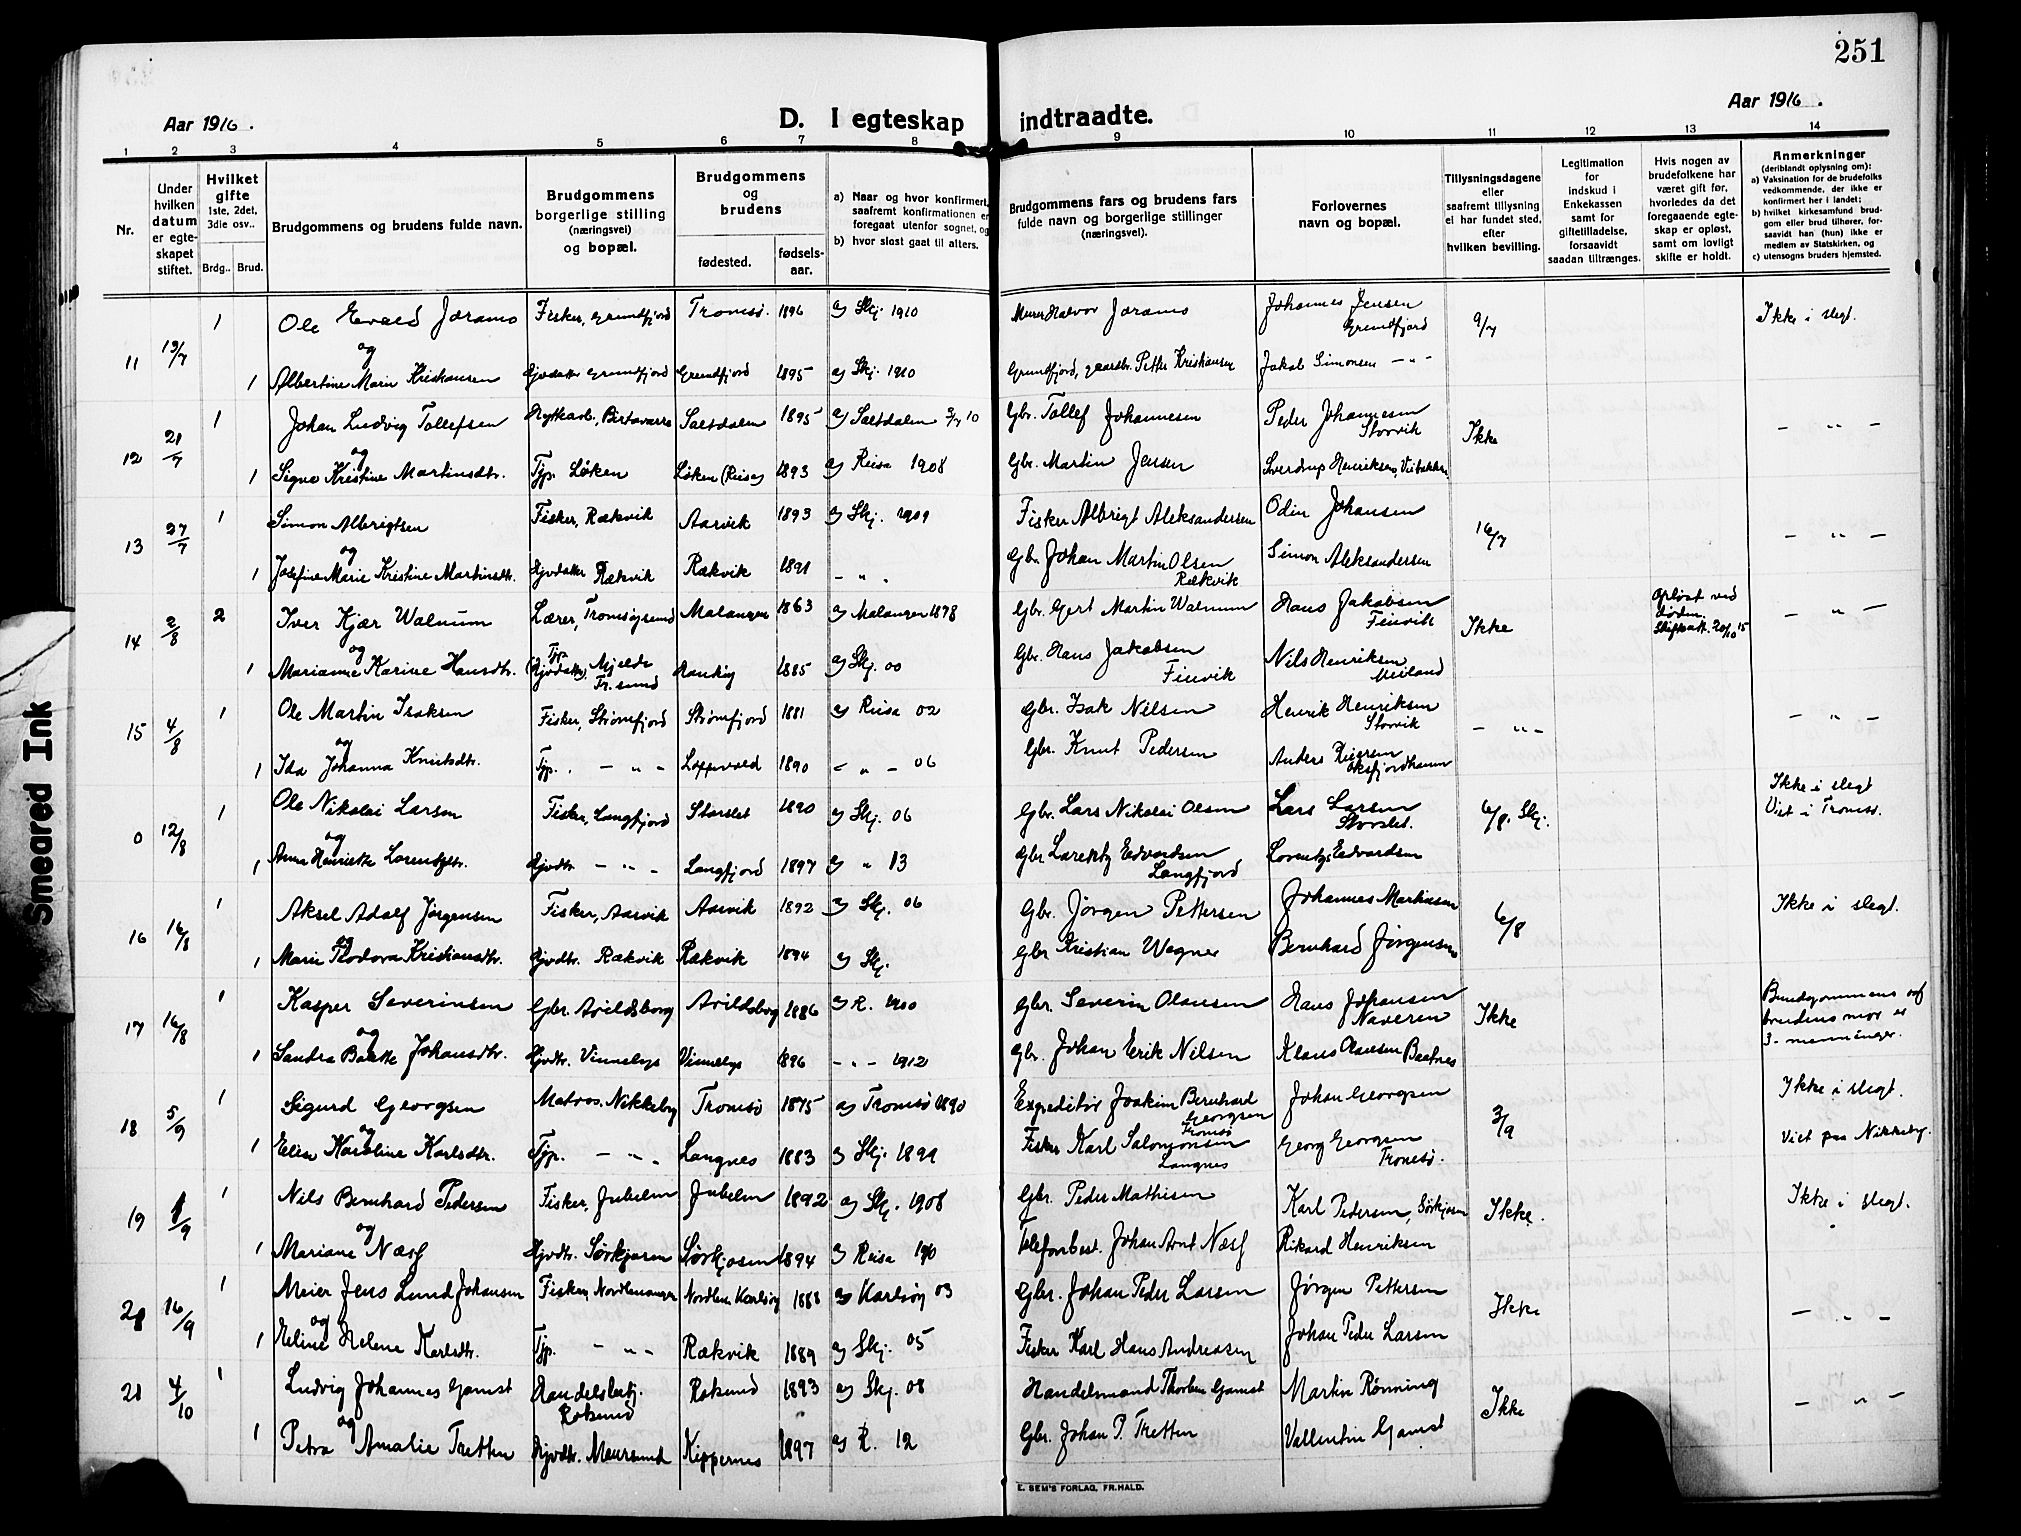 251
Aar 1916.
D. I egteskap indtraadte.
Aar 1916.
1 2 3 4 5 6 7 8 9 10 11 12 13 14
Nr.
Under hvilken datum er egteskapet stiftet.
Hvilket gifte 1ste, 2det, 3die osv..
Brdg.. Brud.
Brudgommens og brudens fulde navn.
Brudgommens borgerlige stilling (næringsvei) og bopæl.
Brudgommens og brudens
fødested. fødselsaar.
a) Naar og hvor konfirmert, saafremt konfirmationen er foregaat utenfor sognet, og
b) hvor sidst gaat til alters.
Brudgommens fars og brudens fars fulde navn og borgerlige stillinger (næringsvei).
Forlovernes navn og bopæl.
Tillysningsdagene eller saafremt tillysning ei har fundet sted, efter hvilken bevilling.
Legitimation for indskud i Enkekassen samt for giftetilladelse, forsaavidt saadan tiltrænges.
Hvis nogen av brudefolkene har været gift før, hvorledes da det foregaaende egteskap er opløst, samt om lovligt skifte er holdt.
Anmerkninger (deriblandt oplysning om):
a) Vaksination for de brudefolks vedkommende, der ikke er konfirmert her i landet;
b) hvilket kirkesamfund brudgom eller brud tilhører, forsaavidt han (hun) ikke er medlem av Statskirken, og
c) utensogns bruders hjemsted.
1 Ole Evald Jørams Fisker, Grundfjord Tromsø. 1896 a) Skj. 1910 Murer Halvor Jørams Johannes Jensen Grundfjord 9/7 Ikke i slegt.
11 19/7 og
1 Albertine Marie Kristiansen Gjvdatter Grundfjord Grundfjord 1895 a) Skj. 1910 Grundfjord, gaardbr. Petter Kristiansen Jakob Simonsen - " -
1 Johan Ludvig Tollefsen Birtavarre Saltdalen 1895 a) Saltdalen 3/7 10 Gbr. Tollef Johannesen Peder Johannesen Storvik Ikke - " -
12 21/7 og
1 Signe Kristine Martinsdtr. Tjp. Løken Løken (Reisa) 1893 a) Reisa 1908 Gbr. Martin Jensen Sverdrup Henriksen, Veibakken
1 Simon Albrigtsen Fisker, Rækvik Aarvik 1893 a) Skj. 1909 Fisker Albrigt Aleksandersen Odin Johansen 16/7 - " -
13 27/7 og
1 Josefine Marie Kristine Martinsdtr. Gjvdatter Rækvik Rækvik 1891 - " - Gbr. Johan Martin Olsen Rækvik Simon Aleksandersen
2 Iver Kjær Walnum Lærer, Tromsøysund Malangen 1863 a) Malangen 1878 Gbr. Gert Martin Walnum Hans Jakobsen Finvik Ikke Opløst ved døden. Skifteatt. 20/10 15 - " -
14 2/8 og
1 Marianne Karine Hansdtr. Tjp. (Gjvdatter) Mjelde Tr.sund 1885 a) Skj. 00 Gbr. Hans Jakobsen Finvik Nils Henriksen Meiland
1 Ole Martin Isaksen Fisker, Strømfjord Strømfjord 1881 a) Reisa 02 Gbr. Isak Nilsen Henrik Henriksen Storvik - " - - " -
15 4/8 og
1 Ida Johanna Knutsdtr. Tjp. - " - Loppvold 1890 - " - 06 Gbr. Knut Pedersen Anders Reiersen Oksfjordhamn
1 Ole Nikolai Larsen Fisker, Langfjord Storslet 1890 a) Skj. 06 Gbr. Lars Nikolai Olsen Lars Larsen Storslet. 6/8. Skj. Ikke i slegt Viet i Tromsø.
0 12/8 og
1 Anna Henriette Lorentzdtr. Gjvdtr. - " - Langfjord 1897 a) " 13 Gbr Lorentz Edvardsen Langfjord Lorentz Edvardsen
1 Aksel Adolf Jørgensen Fisker, Aarvik Aarvik 1892 a) Skj. 06 Gbr. Jørgen Pettersen Johannes Martinsen 6/8 Ikke i slegt.
16 16/8 og
1 Marie Teodora Kristiansdtr. Gjvdtr. Rækvik Rækvik 1894 a) Skj. Gbr Kristian Wagner Bernhard Jørgensen
1 Kasper Severinsen Gbr. Avildsborg Avildsborg 1886 a) R. 1900 Gbr. Severin Olaussen Hans Johansen Naveren Ikke Brudgommens og brudens mor er 3-menninger.
17 16/8 og
1 Sandra Johansdtr. Gjvdtr. Vinnelys Vinnelys 1896 - " - 1912 Gbr. Johan Erik Nilsen Klaus Olaussen Bratnes
1 Sigurd Georgsen Matros. Nikkeby Tromsø 1875 a) Tromsø 1890 Expeditør Joakim Bernhard Georgsen Tromsø Johan Georgsen 3/9 Ikke i slegt.
18 5/9 og
1 Elise Karoline Karlsdtr. Tjp. - " - Langnes 1883 a) Skj. 1899 Fisker Karl Salomonsen Langnes Georg Georgsen Tromsø. Viet paa Nikkeby.
1 Nils Bernhard Pedersen Fisker, Jubelen Jubelen 1892 a) Skj. 1908 Gbr. Peder Mathisen Karl Pedersen, Sørkjosen Ikke. Ikke i slegt.
19 9/9 og
1 Mariane Næss Gjvdtr. Sørkjosen Sørkjosen 1894 a) Reisa 1910 Telefonbest. Johan Arnt Næss Rikard Henriksen
1 Meier Jens Lund Johansen Fisker, Nordlenangen Nordlen Karlsøy 1888 a) Karlsøy 03 Gbr. Johan Peder Larsen Jørgen Pettersen Ikke - " -
20 16/9 og
1 Eline Helene Karlsdtr. Tjp. - " - Rækvik 1889 a) Skj. 05 Fisker Karl Hans Andreasen Johan Peder Larsen
1 Ludvig Johannes Gamst Handelsbetj. Rotsund Rotsund 1893 a) Skj. 08 Handelsmand Thorben Gamst Martin Rønning Ikke - " -
21 4/10 og
1 Petra Amalie Tretten Gjvdtr. Maursund Kippernes 1897 a) R. 12 Gbr. Johan P. Tretten Vallentin Gamst
E. SEM'S FORLAG, FR.HALD.
Smeared Ink